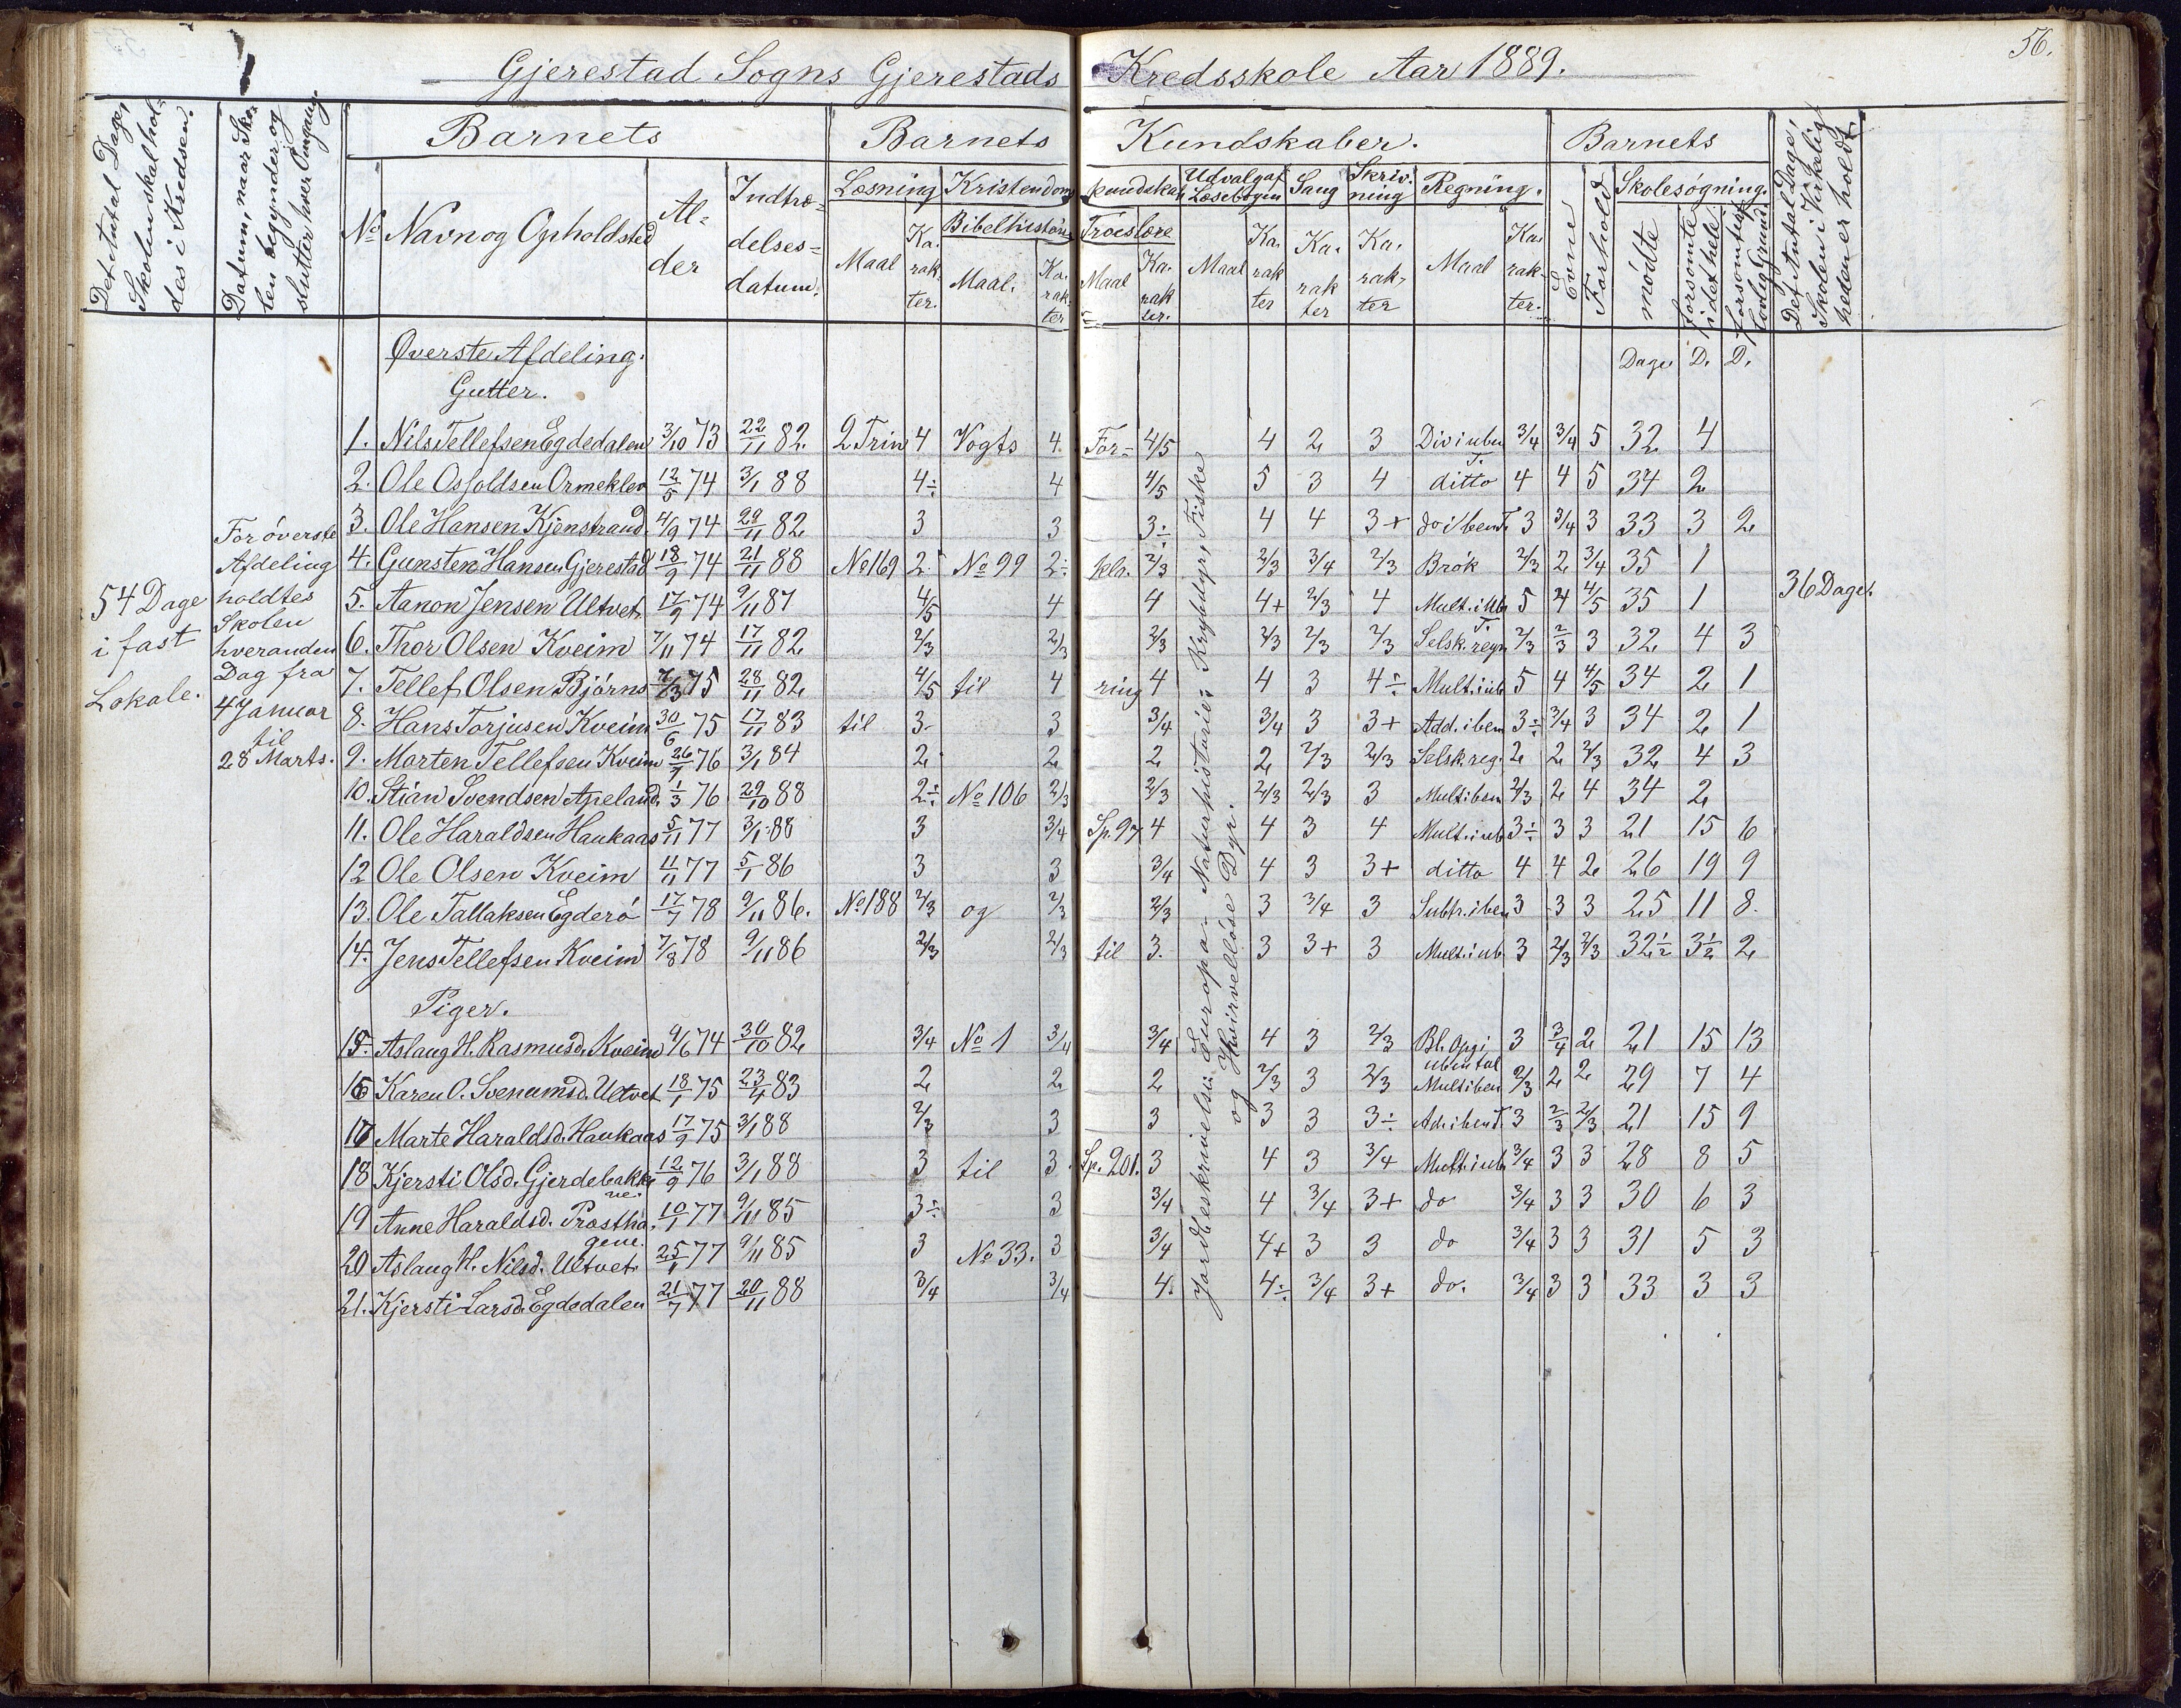 56.
Gjerestad Sogns Gjerestads Kredsskole Aar 1889.
Det Antal Dage, Skolen skal holdes i Kredsen.
Datum, naar Skolen begynder og slutter hver Omgang.
Barnets
Barnets Kundskaber.
Barnets
Det Antal Dage, Skolen i Virkeligheden er holdt.
No Navn og Opholdsted
Alder
Indtrædelsesdatum.
Læsning
Kristendomskundskab
Udvalg af Læsebogen
Sang
Skrivning
Regning.
Evne
Forhold
Skolesøgning.
Bibelhistorie
Troeslære
Maal Karakter.
Maal. Karakter
Maal Karakter.
Maal Karakter
Karakter
Karakter
Maal Karakter.
mødte
forsømte i det hele
forsømte uf. lovlig Grund.
Øverste Afdeling.
Dage D. D.
Gutter.
1. Nils Tellefsen Egdedalen 3/10 73 22/11 82. 2 Trin 4 Vogts 4. For= 4/5 4 2 3 Div i uben T. 3/4 3/4 5 32 4
2. Ole Osfoldsen Ormeklev 12/5 74 3/1 88 4÷ 4 4/5 5 3 4 ditto 4 4 5 34 2
3. Ole Hansen Kjenstrand 4/9 74 29/11 82 3 3 3÷ 4 4 3+ do i ben T. 3 3/4 3 33 3 2
4. Gunsten Hansen Gjerestad 18/9 74 21/11 88 No 169 2. No 99 2÷ klr. 2/3 2/3 3/4 2/3 Brøk 2/3 2 3/4 35 1
5. Aanon Jensen Ultvet 17/9 74 9/11 87 4/5 4 4 4+ 2/3 4 Mult. i ub T. 5 4 4/5 35 1
6. Thor Olsen Kveim 7/11 74 17/11 82 2/3 2/3 2/3 2/3 2/3 2/3 Selsk. regn 2/3 2/3 3 32 4 3
7. Tellef Olsen Bjørns 7/3 75 28/11 82 4/5 til 4 ring 4 4 3 4÷ Mult. i ub 5 4 4/5 34 2 1
8. Hans Torjusen Kveim 30/6 75 17/11 83 til 3. 3 3/4 3/4 3 3+ Add. i ben 3÷ 3/4 3 34 2 1
9. Morten Tellefsen Kveim 26/7 76 3/1 84 2 2 2 2 2/3 2/3 Selsk. reg. 2 2 2/3 32 4 3
10. Stian Svendsen Apeland. 1/3 76 29/10 88 2÷ No 106 2/3 2/3 2/3 2/3 3 Mult i ben 2/3 2 4 34 2
11. Ole Haraldsen Haukaas 5/11 77 3/1 88 3 3/4 Sp. 97 4 4 3 4 Mult. i ub 3÷ 3 3 21 15 6
12 Ole Olsen Kveim 4/11 77 5/1 86 3 3 3/4 4 3 3+ ditto 4 4 2 26 19 9
13. Ole Tallaksen Egderø 17/7 78 9/11 86. No 188 2/3 og 2/3 2/3 3 3/4 3 Subtr. i ben 3 3 3 25 11 8.
14. Jens Tellefsen Kveim 7/8 78 9/11 86 2/3 2/3 til 3. 3 3+ 3 Mult. i ub 3 2/3 2/3 32½ 3½ 2
Piger.
15. Aslaug H. Rasmusd. Kveim 9/6 74 30/10 82 3/4 No 1 3/4 3/4 4 3 2/3 Bl. Opg i uben tal 3 3/4 2 21 15 13
16 Karen O. Svenumsd. Ultvet 18/1 75 23/4 83 2 2 2 2/3 3 2/3 Mult i ben 2/3 2 2 29 7 4
17 Marte Haraldsd. Haukaas 17/9 75 3/1 88 2/3 3 3 3 3 3÷ Ad. i ben T 3 2/3 2/3 21 15 9
18 Kjersti Olsd. Gjerdebakkene. 12/9 76 3/1 88 3 til 3. Sp. 201. 3 4 3 3/4 Mult. i ub 3/4 3 3 28 8 5
19 Anne Haraldsd. Prosthagene. 10/1 77 9/11 85 3÷ 3 3/4 4 3/4 3+ do 3/4 3 3 30 6 3
20 Aslaug H. Nilsd. Ultvet 25/1 77 9/11 85 3 No 33. 3 3/4 4+ 3 3 do 3/4 3 3 31 5 3
21. Kjersti Larsd. Egdedalen 21/7 77 20/11 88 3/4 3/4 4. 4÷ 3/4 3+ do. 3/4 3 3 33 3 3
54 Dage
i fast
Lokale.
For øverste
Afdeling
holdtes
Skolen
hveranden
Dag fra
4 Januar
til
28 Marts.
Jordbeskrivelse: Europa - Naturhistorie: Krybdyr, Fiske
og Hvirvelløse Dyr.
36 Dage.